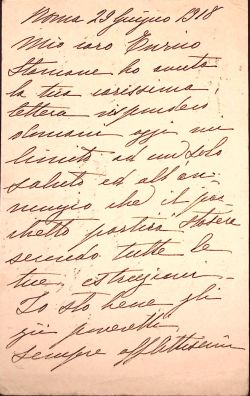 Roma 29 Giugno 1918
Mio caro Enrico
Stamane ho avuto
la tua carissima,
lettera risponderò
domani oggi mi
limito ad un solo
saluto ed all'an-
nunzio che il pac-
chetto partirà stasera
secondo tutte le
tue istruzioni -
Io sto bene gli
zii poveretti
sempre afflittissimi